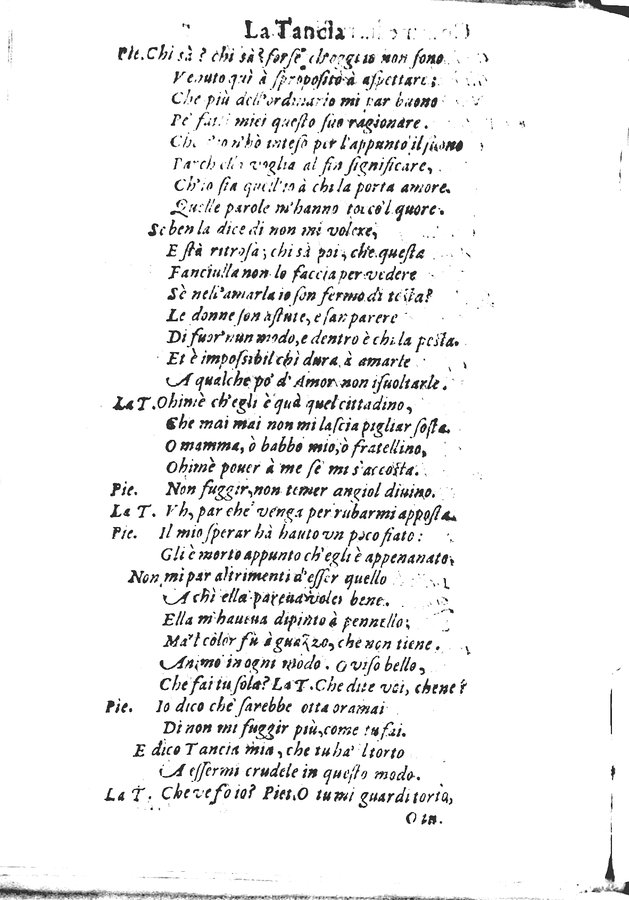 La Tancia
Pie. Chi sà? chi sà? forse ch'oggi io non sono
Venuto quì à sproposito à aspettare;
Che più dell'ordinario mi par buono
Pe' fatti miei questo suo ragionare.
Che n'hò inteso per l'appunto il suono
Parch' ella voglia al fin significare,
Ch'io sia quell'io à chi la porta amore.
Quelle parole m'hanno tocco'l quore.
Seben la dice di non mi volere,
E stà ritrosa; chi sà poi, che questa
Fanciulla non lo faccia per vedere
Sè nell'amarla io son fermo di testa?
Le donne son astute, e fan parere
Di fuor'nun modo, e dentro è chi la pesta.
Et è impossibil chi dura à amarle
A qualche po' d'Amor non isuoltarle.
La T. Ohimè ch'egli è quà quel cittadino,
Che mai mai non mi lascia pigliar sosta.
O mamma, ò babbo mio, ò fratellino,
Ohimè pouer à me sè mi s'accosta.
Pie. Non fuggir, non temer angiol diuino.
La T. Vh, par che venga per rubarmi apposta.
Pie. Il mio sperar hà hauto vn poco fiato:
Gli è morto appunto ch'egli è appena nato.
Non mi par altrimenti d'esser quello
A chi ella pareua voler bene.
Ella m'haueua dipinto à pennello;
Ma'l color fù à guazzo, che non tiene.
Animo in ogni modo. O viso bello,
Che fai tu sola? La T. Che dite voi, chene?
Pie. Io dico che sarebbe otta oramai
Di non mi fuggir più, come tu fai.
E dico Tancia mia, che tu ha'l torto
A essermi crudele in questo modo.
La T. Che ve fo io? Piet. O tu mi guardi torto,
O tu.